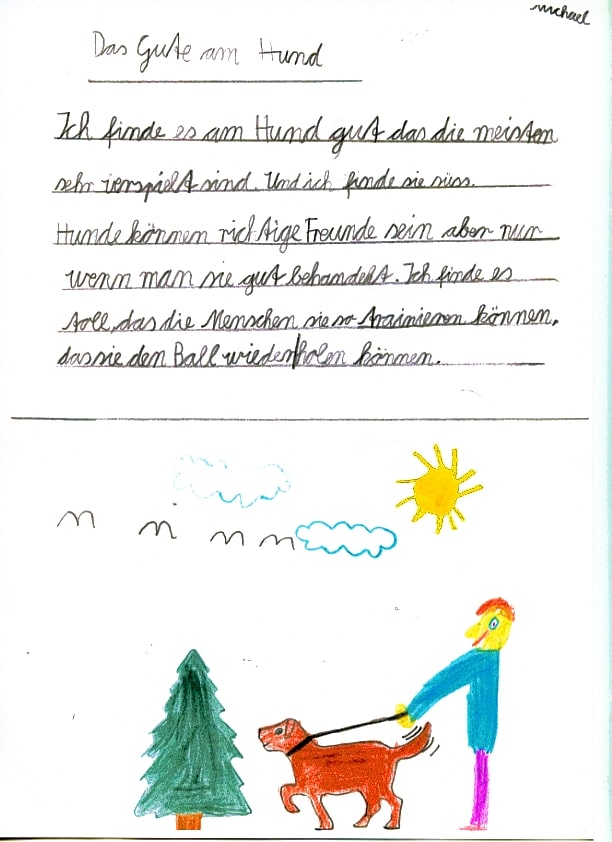 michael
Das Gute am Hund
Ich finde es am Hund gut das die meisten
sehr verspielt sind. Und ich finde sie süss.
Hunde können richtige Freunde sein aber nur
wenn man sie gut behandelt. Ich finde es
toll, das die Menschen sie so trainieren können,
das sie den Ball wieder holen können.